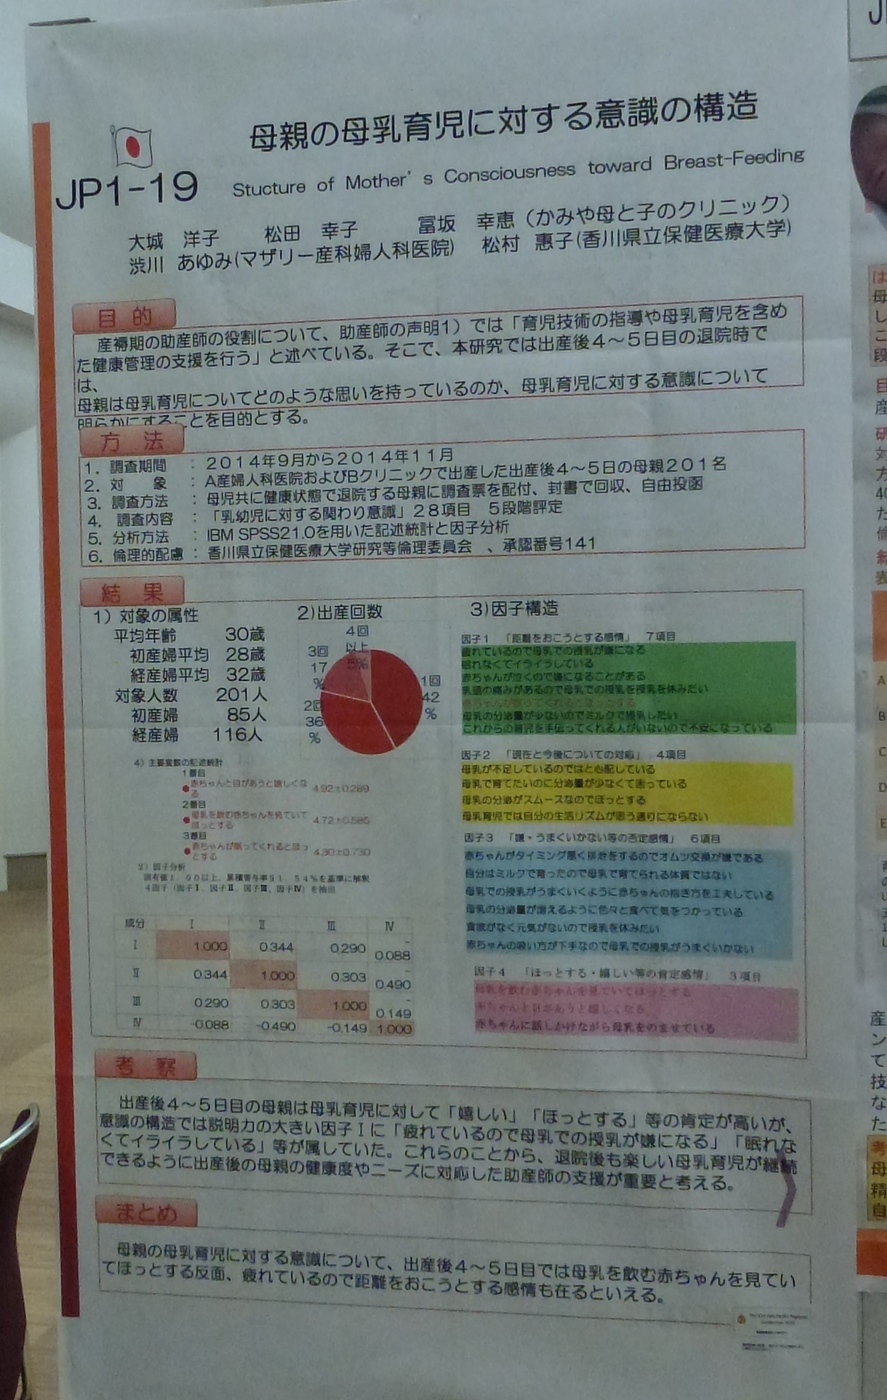 母親の母乳育児に対する意識の構造
JP1-19
Stucture of Mother's Consciousness toward Breast-Feeding
大城 洋子 松田 幸子 冨坂 幸恵（かみや母と子のクリニック）
渋川 あゆみ(マザリー産科婦人科医院) 松村 惠子(香川県立保健医療大学)
目 的
産褥期の助産師の役割について、助産師の声明1）では「育児技術の指導や母乳育児を含め
た健康管理の支援を行う」と述べている。そこで、本研究では出産後４～５日目の退院時で
は、
母親は母乳育児についてどのような思いを持っているのか、母乳育児に対する意識について
明らかにすることを目的とする。
方 法
1. 調査期間 ： ２０１４年９月から２０１４年１１月
2. 対 象 ： A産婦人科医院およびBクリニックで出産した出産後４～５日の母親２０１名
3. 調査方法 ： 母児共に健康状態で退院する母親に調査票を配付、封書で回収、自由投函
4. 調査内容 ： 「乳幼児に対する関わり意識」２８項目 ５段階評定
5. 分析方法 ： IBM SPSS21.0を用いた記述統計と因子分析
6. 倫理的配慮 ： 香川県立保健医療大学研究等倫理委員会 、承認番号141
結 果
1）対象の属性
平均年齢 30歳
初産婦平均 28歳
経産婦平均 32歳
対象人数 201人
初産婦 85人
経産婦 116人
2)出産回数
4回
以上
5%
3回
17
%
1回
42
%
2回
36
%
3)因子構造
因子1 「距離をおこうとする感情」 7項目
疲れているので母乳での授乳が嫌になる
眠れなくてイライラしている
赤ちゃんが泣くので嫌になることがある
乳頭の痛みがあるので母乳での授乳を授乳を休みたい
赤ちゃんが眠ってくれるとほっとする
母乳の分泌量が少ないのでミルクで授乳したい
これからの育児を手伝ってくれる人がいないので不安になっている
因子2 「現在と今後についての対応」 4項目
母乳が不足しているのではと心配している
母乳で育てたいのに分泌量が少なくて困っている
母乳の分泌がスムースなのでほっとする
母乳育児では自分の生活リズムが思う通りにならない
因子3 「嫌・うまくいかない等の否定感情」 6項目
赤ちゃんがタイミング悪く排泄をするのでオムツ交換が嫌である
自分はミルクで育ったので母乳で育てられる体質ではない
母乳での授乳がうまくいくように赤ちゃんの抱き方を工夫している
母乳の分泌量が増えるように色々と食べて気をつかっている
食欲がなく元気がないので授乳を休みたい
赤ちゃんの吸い方が下手なので母乳での授乳がうまくいかない
因子4 「ほっとする・嬉しい等の肯定感情」 3項目
母乳を飲む赤ちゃんを見ていてほっとする
赤ちゃんと目があうと嬉しくなる
赤ちゃんに話しかけながら母乳をのませている
4）主要変数の記述統計
1番目
●赤ちゃんと目があうと嬉しくな
る 4.92±0.289
2番目
●母乳を飲む赤ちゃんを見ていて
ほっとする 4.72±0.585
3番目
●赤ちゃんが眠ってくれるとほっ
とする 4.30±0.730
5）因子分析
固有値1．00以上、累積寄与率51．54％を基準に解釈
4因子（因子Ⅰ、因子Ⅱ、因子Ⅲ、因子Ⅳ）を抽出
成分 Ⅰ Ⅱ Ⅲ Ⅳ
Ⅰ 1.000 0.344 0.290 -0.088
Ⅱ 0.344 1.000 0.303 -0.490
Ⅲ 0.290 0.303 1.000 -0.149
Ⅳ -0.088 -0.490 -0.149 1.000
考 察
出産後４～５日目の母親は母乳育児に対して「嬉しい」「ほっとする」等の肯定が高いが、
意識の構造では説明力の大きい因子Ⅰに「疲れているので母乳での授乳が嫌になる」「眠れな
くてイライラしている」等が属していた。これらのことから、退院後も楽しい母乳育児が継続
できるように出産後の母親の健康度やニーズに対応した助産師の支援が重要と考える。
まとめ
母親の母乳育児に対する意識について、出産後４～５日目では母乳を飲む赤ちゃんを見てい
てほっとする反面、疲れているので距離をおこうとする感情も在るといえる。